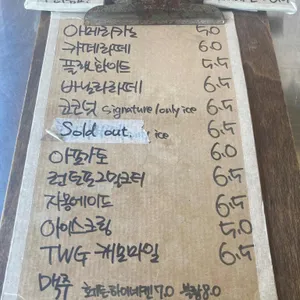 아메리카노 5.0
카페라떼 6.0
플랫화이트 5.5
바닐라라떼 6.5
코코넛 signature/only ice 6.5
Sold out ice 6.5
아포가토 6.0
런던포그밀크티 6.5
자몽에이드 6.5
아이스크림 5.0
TWG 캐모마일 6.5
맥주 하이네켄 7.0 8.0